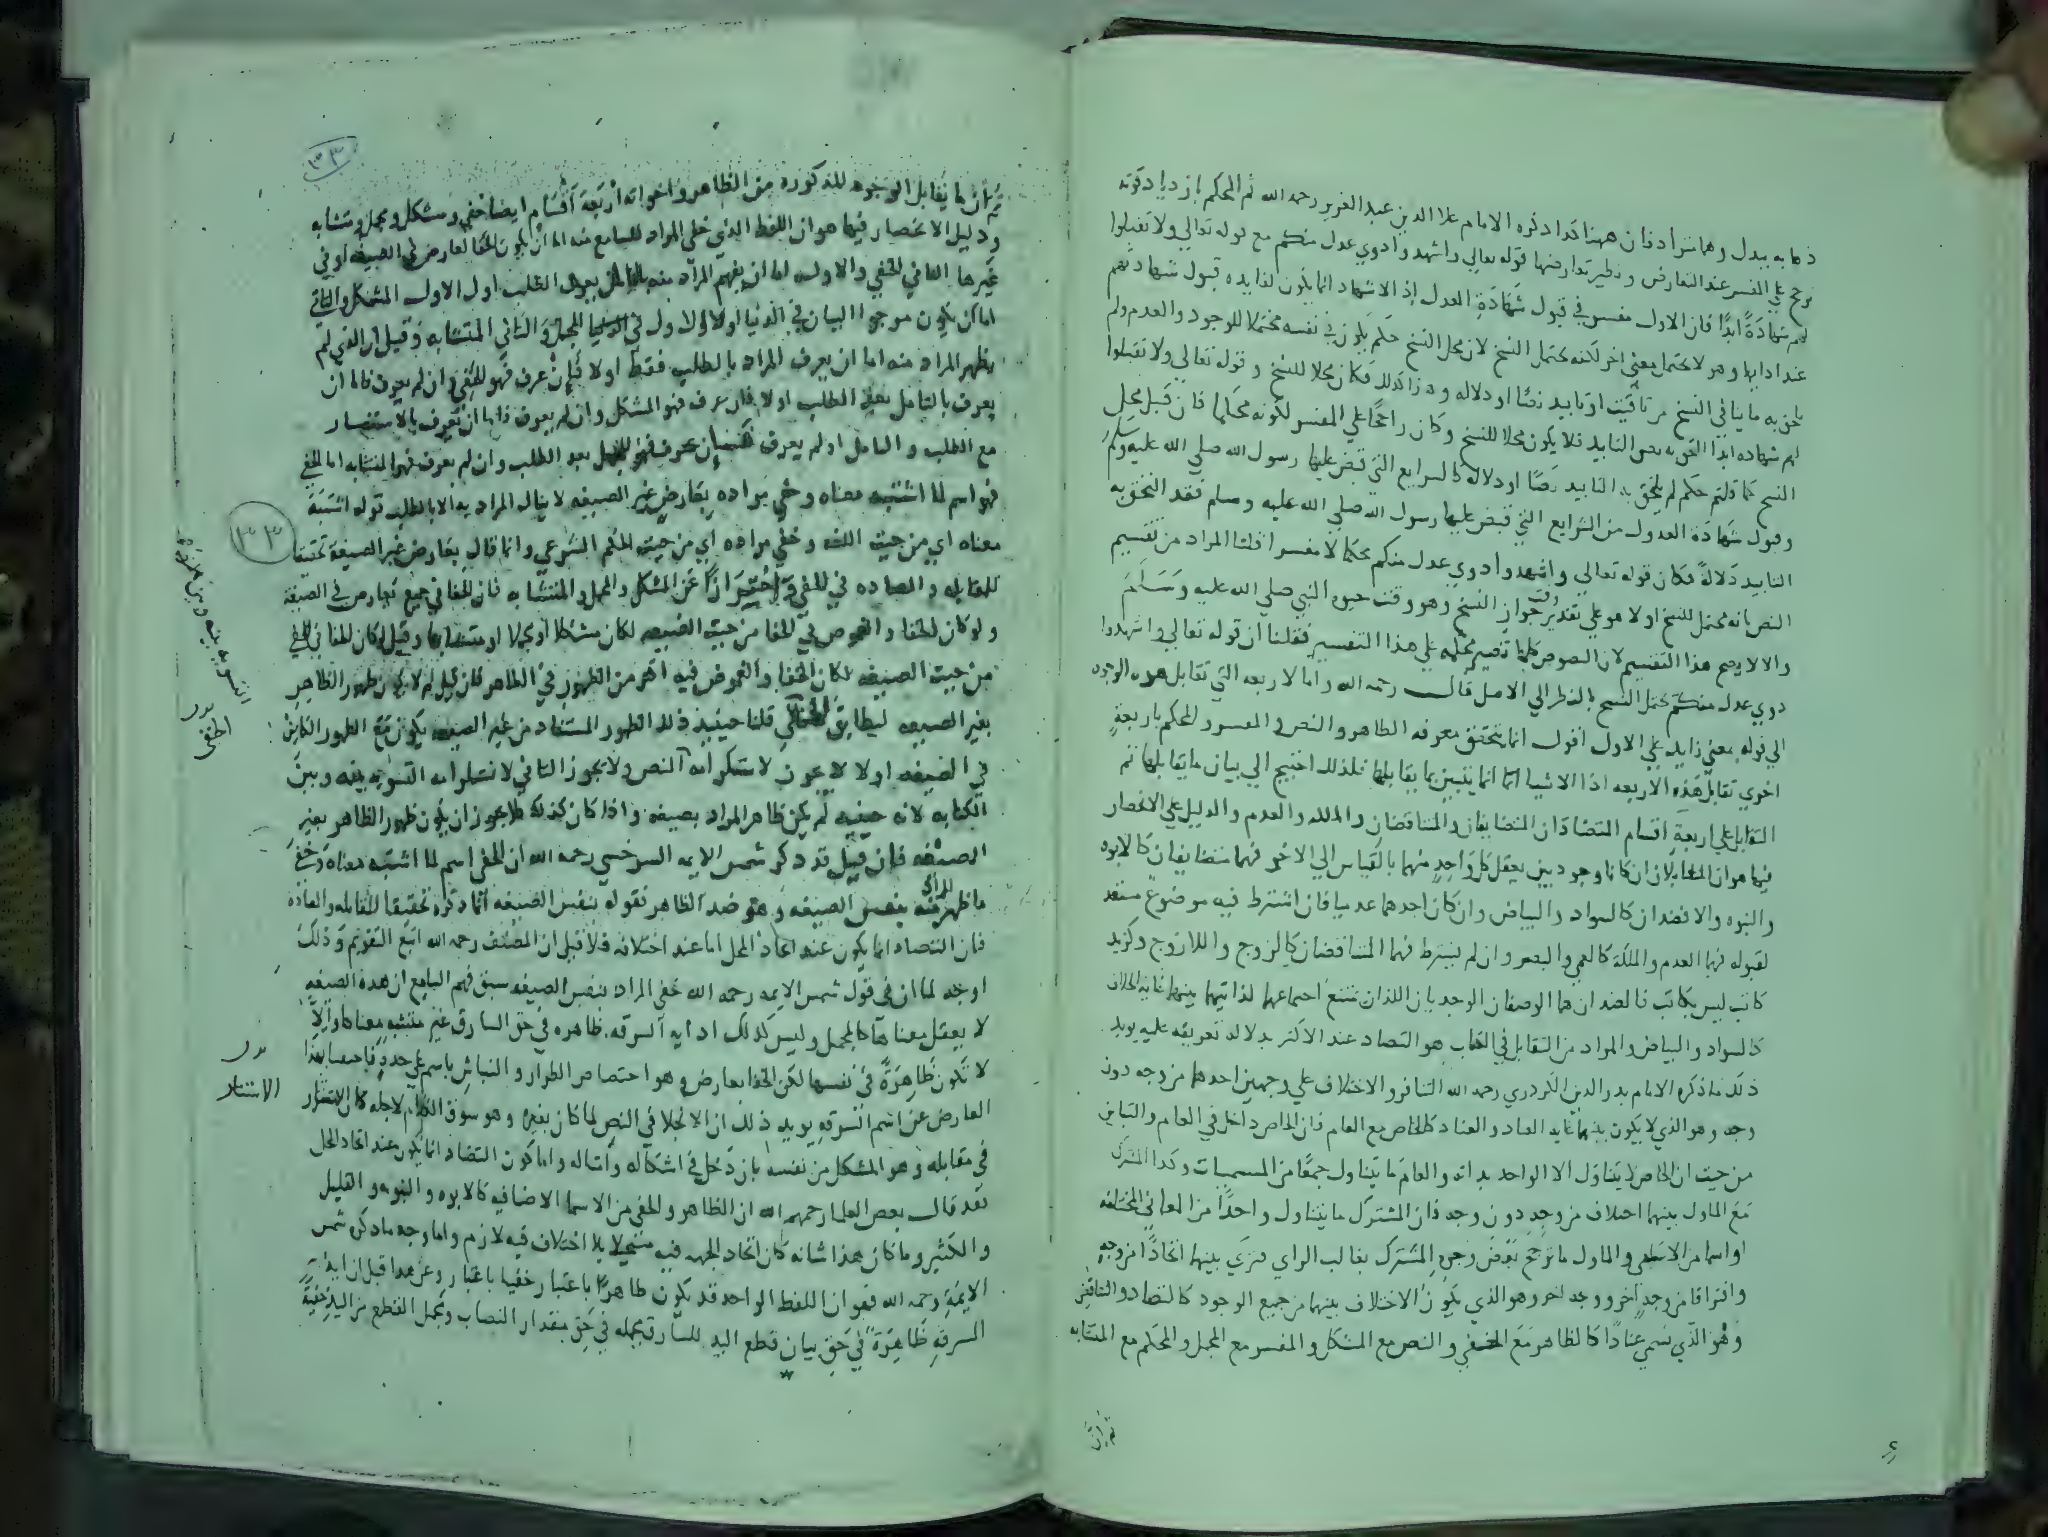 ذهابه ببدل وهما مترادفان ههنا كذا ذكره الامام علا الدين عبد العزيز رحمه الله ثم المحكم بازدياد قوته
ترجح علي المفسر عند التعارض ونظير تعارضهما قوله تعالي واشهدوا ذوي عدل منكم مع قوله تعالي ولا تقبلوا
لهم شهادةً ابدًا فان الاول مفسر في قبول شهادة العدول إذ الاشهاد انما يكون لفايده قبول شهادتهم
عند ادايها وهو لا يحتمل معني اخر لكنه يحتمل النسخ لان محل النسخ حكم يكون في نفسه محتملا للوجود والعدم ولم
يلحق به ما ينافي النسخ من تاقيت او تابيد نصًا او دلاله وهذا كذلك فكان محلا للنسخ وقوله تعالي ولا تقبلوا
لهم شهاده ابدا التحق به نص التابيد فلا يكون محلا للنسخ وكان راجحًا علي المفسر لكونه محكما فان قيل محل
النسخ كما قلتم حكم لم يلحق به التابيد نصًا او دلاله كالشرايع التي قبض عليها رسول الله صلي الله عليه وسلم
وقبول شهادة العدول من الشرايع التي قبض عليها رسول الله صلي الله عليه وسلم فقد التحق به
التابيد دلالةً فكان قوله تعالي واشهدوا ذوي عدل منكم محكما لا مفسرا قلنا المراد من تقسيم
النص بانه محتمل للنسخ اولا هو علي تقدير جواز النسخ وهو وقت حيوه النبي صلي الله عليه وسلم
والا لا يصح هذا التقسيم لان النصوص كلها تصير محكمه علي هذا التفسير فقلنا ان قوله تعالي واشهدوا
ذوي عدل منكم محتمل النسخ بالنظر الي الاصل قال رحمه الله واما الاربعه التي تقابل هذه الوجوه
الي قوله بمعني زايد علي الاول اقول انما يتحقق معرفه الظاهر والنص والمفسر والمحكم باربعةٍ
اخري تقابل هذه الاربعه اذا الاشيا انما تتبين بما يقابلها فلذلك احتيج الي بيان ما يقابلها ثم
التقابل علي اربعةِ اقسام التضادان المتضايفان والمتناقضان والملكه والعدم والدليل علي الانحصار
فيها هو ان المتقابلان ان كانا وجوديين يعقل كل واحدٍ منهما بالقياس الي الاخر فهما متضايفان كالابوه
والبنوه والا فضدان كالسواد والبياض وان كان احدهما عدميا فان اشترط فيه موضوع مستعد
لقبوله فهما العدم والملكة كالعمي والبصر وان لم يشترط فهما المتناقضان كالزوج واللازوج وكزيد
كاتب ليس بكاتب فالضدان هما الوصفان الوجوديان اللذان يمتنع اجتماعهما لذاتيهما بينهما غاية الخلاف
كالسواد والبياض والمراد من التقابل في الكتاب هو التضاد عند الاكثر بدلاله تعريفه عليه يويد
ذلك ما ذكره الامام بدر الدين الكردري رحمه الله التنافر والاختلاف علي وجهين احدهما من وجه دون
وجه وهو الذي لا يكون بينهما غايه العناد والعناد كالخاص مع العام فان الخاص داخل في العام والتباين
من حيث ان الخاص لا يتناول الا الواحد بذاته والعام ما يتناول جمعًا من المسميات وكذا المشترك
مع الماول بينهما اختلاف من وجهٍ دون وجه فان المشترك ما يتناول واحدًا من المعاني المختلفه
او اسما من الاسامي والماول ما ترجح بعض وجوهِ المشترك بغالب الراي فتري بينهما اتحادًا من وجهٍ
وافتراقا من وجهٍ اخر ووجه اخر وهو الذي يكون الاختلاف بينهما من جميع الوجوه كالتضاد والتناقض
وهو الذي يسمي عنادًا كالظاهر مع الخفي والنص مع المشكل والمفسر مع المجمل والمحكم مع المتشابه
ثم ان
٣٣
ثم ان ما يقابل الوجوه المذكوره من الظاهر واخواته اربعة اقسام ايضا خفي ومشكل ومجمل ومتشابه
ودليل الانحصار فيها هو ان اللفظ الذي خفي المراد للسامع منه اما ان يكون الخفا لعارض في الصيغه او في
غيرها الثاني الخفي والاول اما ان يفهم المراد منه بالتامل بعد الطلب اولا الاول المشكل والثاني
اما ان يكون مرجو البيان في الدنيا اولا والاول المجمل والثاني المتشابه وقيل ان الذي لم
يظهر المراد منه اما ان يعرف المراد بالطلب فقط اولا فإن عرف فهو الخفي وان لم يعرف فاما ان
يعرف بالتامل بعد الطلب اولا فان عرف فهو المشكل وان لم يعرف فاما ان يعرف بالاستفسار
مع الطلب والتامل او لم يعرف فإن عرف فهو المجمل بعد الطلب وان لم يعرف فهو المتشابه اما الخفي
فهو اسم لما اشتبه معناه وخفي مراده بعارضٍ غير الصيغه لا ينال المراد به الا بالطلب قوله اشتبه
٣٣
معناه اي من حيث اللغه وخفي مراده اي من حيث الحكم الشرعي وانما قال بعارض غير الصيغة تحقيقا
للمقابله والمضاده في الخفي واحترازًا عن المشكل والمجمل والمتشابه فان الخفا في جميع بعارض في الصيغة
ولو كان الخفا والغموض في الخفا من حيث الصيغه لكان مشكلا او مجملا او متشابها وقيل لو كان الخفا في الخفي
من حيث الصيغه لكان الخفا والغموض فيه اكثر من الظهور في الظاهر فان قيل لم لا يكون ظهور الظاهر
بغير الصيغه ليطابق الخفي قلنا حينيذ ذلك الظهور المستفاد من غير الصيغه يكون مع الظهور الكاين
في الصيغه اولا لا يجوز لاستلزامه النص ولا يجوز الثاني لاستلزامه التسويه بينه وبين
الكنايه لانه حينيذ لم يكن ظاهر المراد بصيغه واذا كان كذلك فلا يجوز ان يكون ظهور الظاهر بغير
الصيغه فان قيل قد ذكر شمس الايمه السرخسي رحمه الله ان الخفي اسم لما اشتبه معناه وخفي
ما ظهر المراد منه بنفس الصيغه وهو ضد الظاهر فقوله بنفس الصيغه انما ذكره تحقيقا للمقابله والمضاده
فان التضاد انما يكون عند اتحاد المحل اما عند اختلافه فلا قيل ان المصنف رحمه الله اتبع التقويم وذلك
اوجه لما ان في قول شمس الايمه رحمه الله خفي المراد بنفس الصيغه سبق فهم السامع ان هذه الصيغه
لا يعقل معناها كالمجمل وليس كذلك اذ ايه السرقه ظاهره في حق السارق غير مشتبه معناها والا
لا تكون ظاهرةً في نفسها لكن الخفا بعارض وهو اختصاص الطرار والنباش باسم علي حدةٍ فاختفيا بهذا
العارض عن اسم السرقه يويد ذلك ان الانجلا في النص لما كان بغيره وهو سوق الكلام لاجله كان الاستتار
في مقابله وهو المشكل من نفسه بان دخل في اشكاله وامثاله واما كون التضاد انما يكون عند اتحاد المحل
فقد قال بعض العلما رحمهم الله ان الظاهر والخفي من الاسما الاضافيه كالابوه والبنوه والقليل
والكثير وما كان هذا شانه كان اتحاد الجهه فيه بلا اختلاف فيه لازم واما وجه ما ذكره شمس
الايمة رحمه الله فهو ان اللفظ الواحد قد يكون ظاهرًا باعتبار خفيا باعتبار وعن هذا قيل ان اية
السرقه ظاهرةً في حق بيان قطع اليد للسارق مجمله في حق مقدار النصاب ومحل القطع من اليد خفيةً
التسويه بينه وبين
بدل
الخفي
بدل
الاستتار